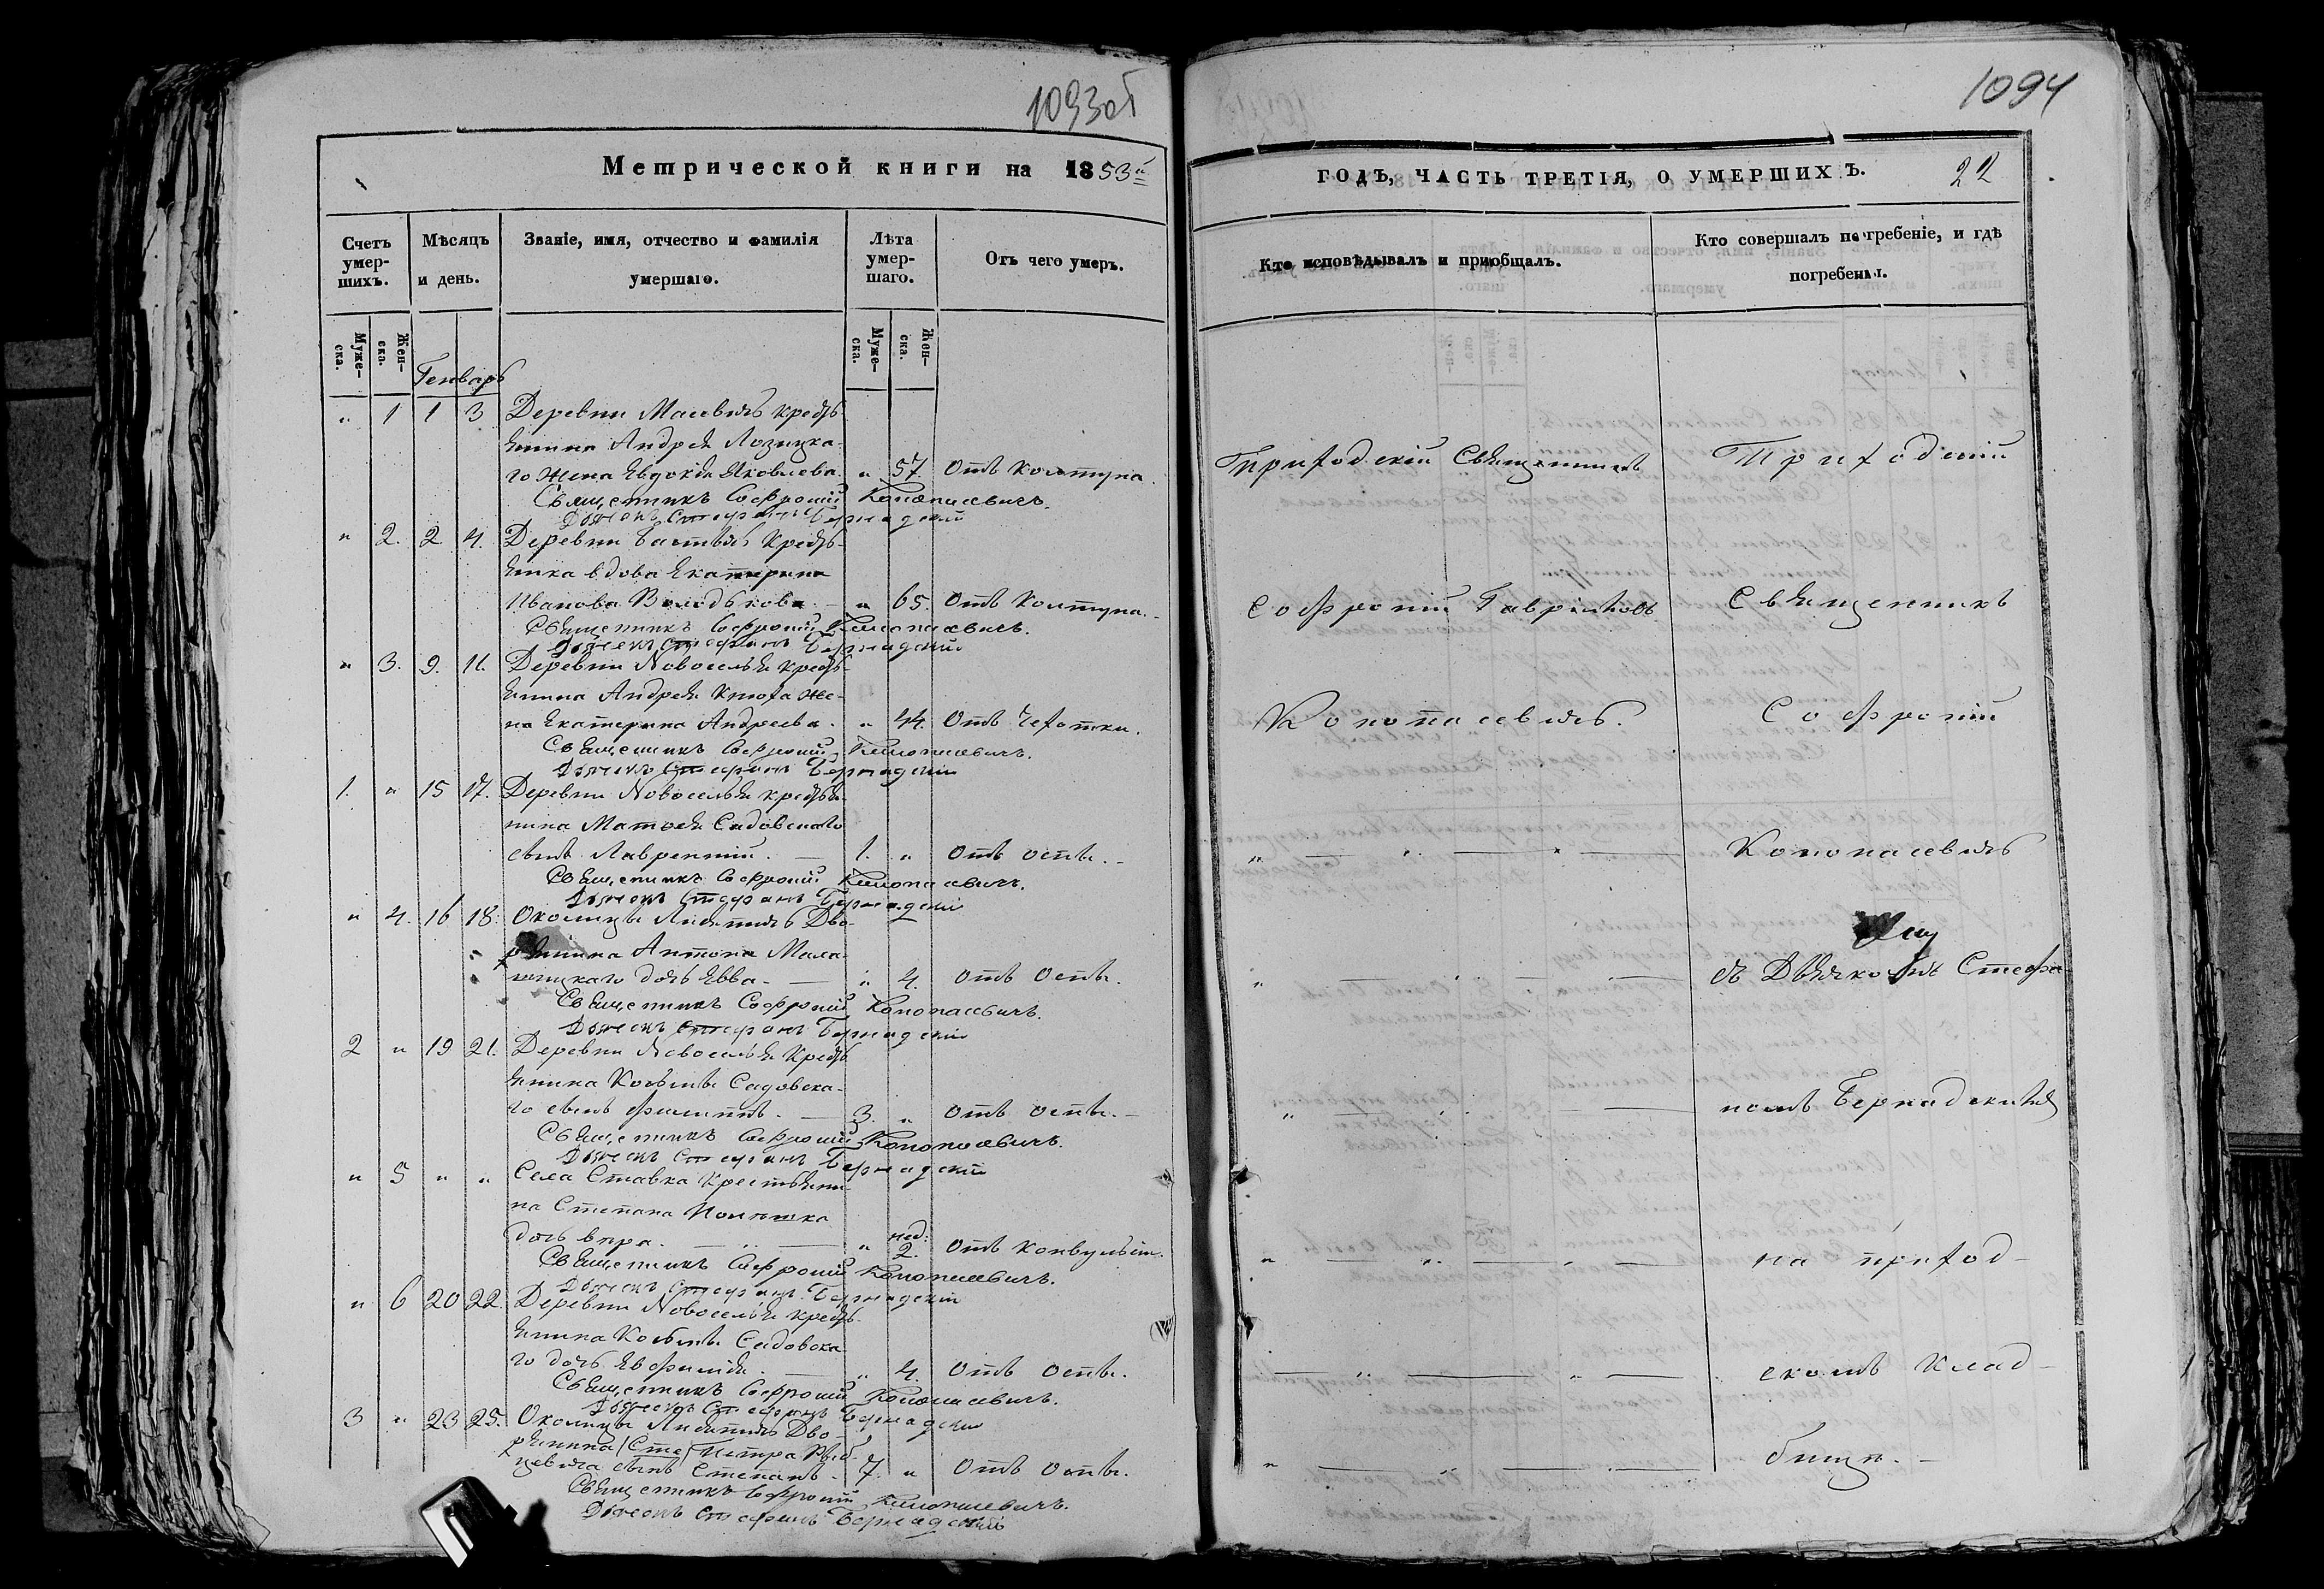 1093об
Метрической книги на 1853й
Счетъ умер-шихъ.
Мѣсяцъ и день.
Званіе, имя, отчество и фамилія умершаго.
Лѣта умер-шаго.
Отъ чего умеръ.
Муже-ска.
Жен-ска.
Муже-ска.
Жен-ска.
Генварь
" 1 1 3 Деревни Масевичъ кресть-
янина Андрея Лозицка-
го жена Евдокія Яковлева. " 57 Отъ колтуна.
Священникъ Софроній Конопасевичъ.
Дьячекъ Стефанъ Бернадскій
" 2. 2. 4. Деревни Кресть-
янка вдова Екатерина
Иванова Володькова. — " 65. Отъ колтуна.
Священникъ Софроній Конопасевичъ.
Дьячекъ Стефанъ Бернадскій
" 3. 9. 11. Деревни Новоселья кресть-
янина Андрея Кнюха же-
на Екатерина Андреева. " 44. Отъ Чахотки.
Священникъ Софроній Конопасевичъ.
Дьячекъ Стефанъ Бернадскій
1. " 15 17. Деревни Новоселья крестья-
нина Матвея Садовскаго
сынъ Лаврентій. — 1. " Отъ оспы. -
Священникъ Софроній Конопасевичъ.
Дьячекъ Стефанъ Бернадскій
" 4. 16 18. Околицы Дво-
рянина Антона Мала-
дочь Евва. — " 4. Отъ Оспы.
Священникъ Софроній Конопасевичъ.
Дьячекъ Стефанъ Бернадскій
2 " 19 21. Деревни Новоселья Кресть-
янина Косьмы Садовска-
го сынъ Филиппъ. — 3. " Отъ оспы. -
Священникъ Софроній Конопасевичъ.
Дьячекъ Стефанъ Бернадскій
" 5 " " Села Ставка Крестьяни-
на Степана
дочь — " нед: 2. Отъ конвульсіи.
Священникъ Софроній Конопасевичъ.
Дьячекъ Стефанъ Бернадскій
" 6 20 22. Деревни Новоселья кресть-
янина Косьмы Садовска-
го дочь Евфимія. — " 4. Отъ Оспы.
Священникъ Софроній Конопасевичъ.
Дьячекъ Стефанъ Бернадскій
3 " 23 25. Околицы Дво-
рянина (Сте) Петра
сынъ Степанъ. 7. " Отъ Оспы.
Священникъ Софроній Конопасевичъ.
Дьячекъ Стефанъ Бернадскій
1094
ГОДЪ, ЧАСТЬ ТРЕТІЯ, О УМЕРШИХЪ. 22
Кто исповѣдывалъ и пріобщалъ.
Кто совершалъ погребеніе, и гдѣ погребены.
Приходскій Священникъ
Софроній Гавріиловъ
Конопасевичъ.
Приходскій
Священникъ
Софроній
Конопасевичъ
съ Дьячкомъ Стефа-
номъ Бернадскимъ
на приход-
скомъ клад-
бищѣ. -